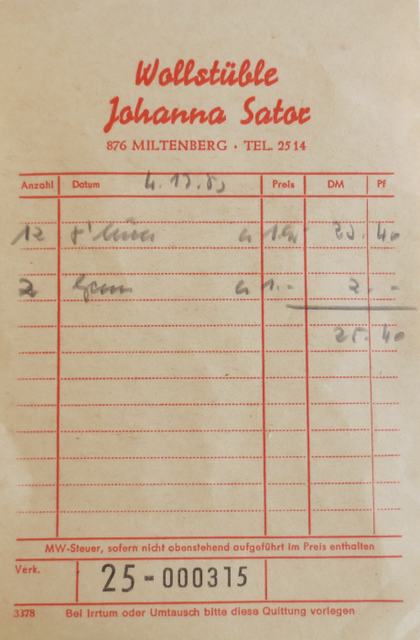 Wollstüble
Johanna Sator
876 MILTENBERG · TEL. 2514
Anzahl Datum Preis DM Pf
12 à 23.40
2 Garn à 1.- 2.-
25.40
MW-Steuer, sofern nicht obenstehend aufgeführt im Preis enthalten
Verk. 25-000315
3378 Bei Irrtum oder Umtausch bitte diese Quittung vorlegen